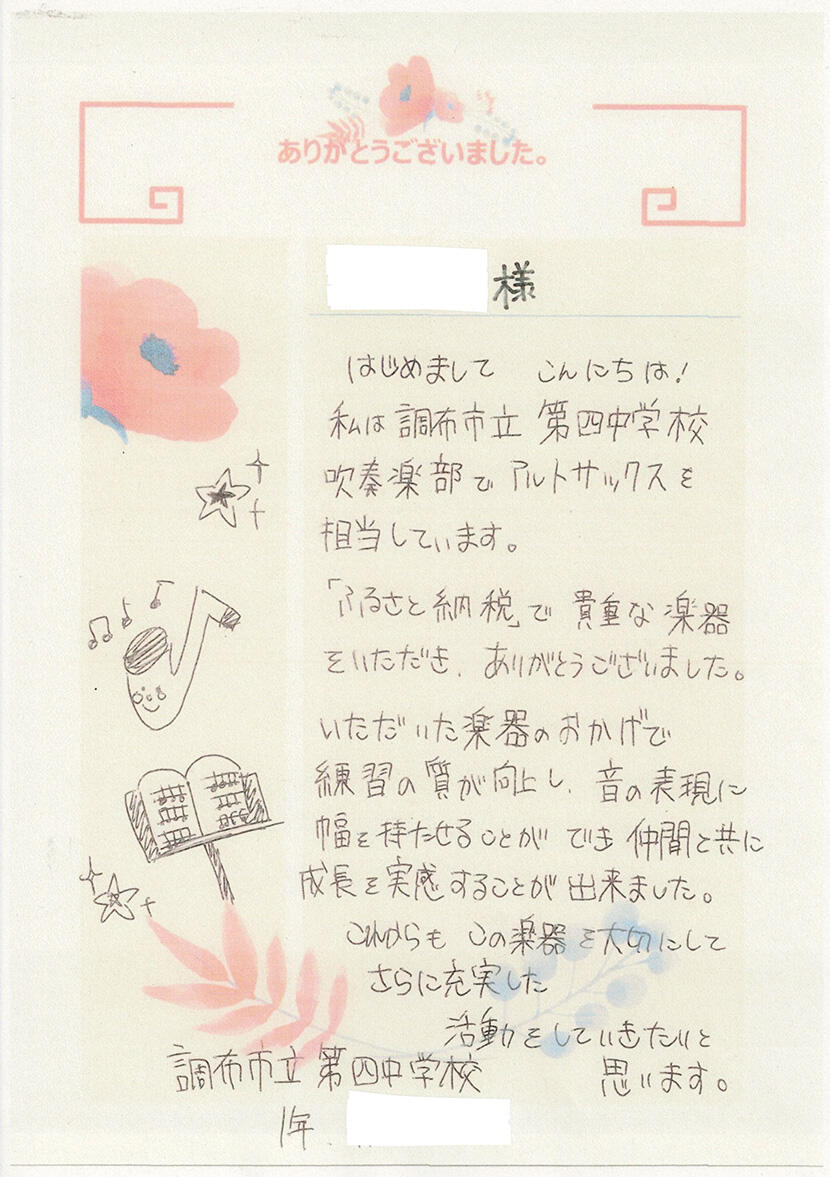 ありがとうございました。
様
はじめまして こんにちは！
私は調布市立 第四中学校
吹奏楽部で アルトサックスを
担当しています。
「ふるさと納税」で 貴重な 楽器
をいただき、ありがとうございました。
いただいた楽器のおかげで
練習の質が向上し、音の表現に
幅を持たせることが でき 仲間と共に
成長を実感することが出来ました。
これからも この楽器を大切にして
さらに充実した
活動をしていきたいと
思います。
調布市立 第四中学校
1年、